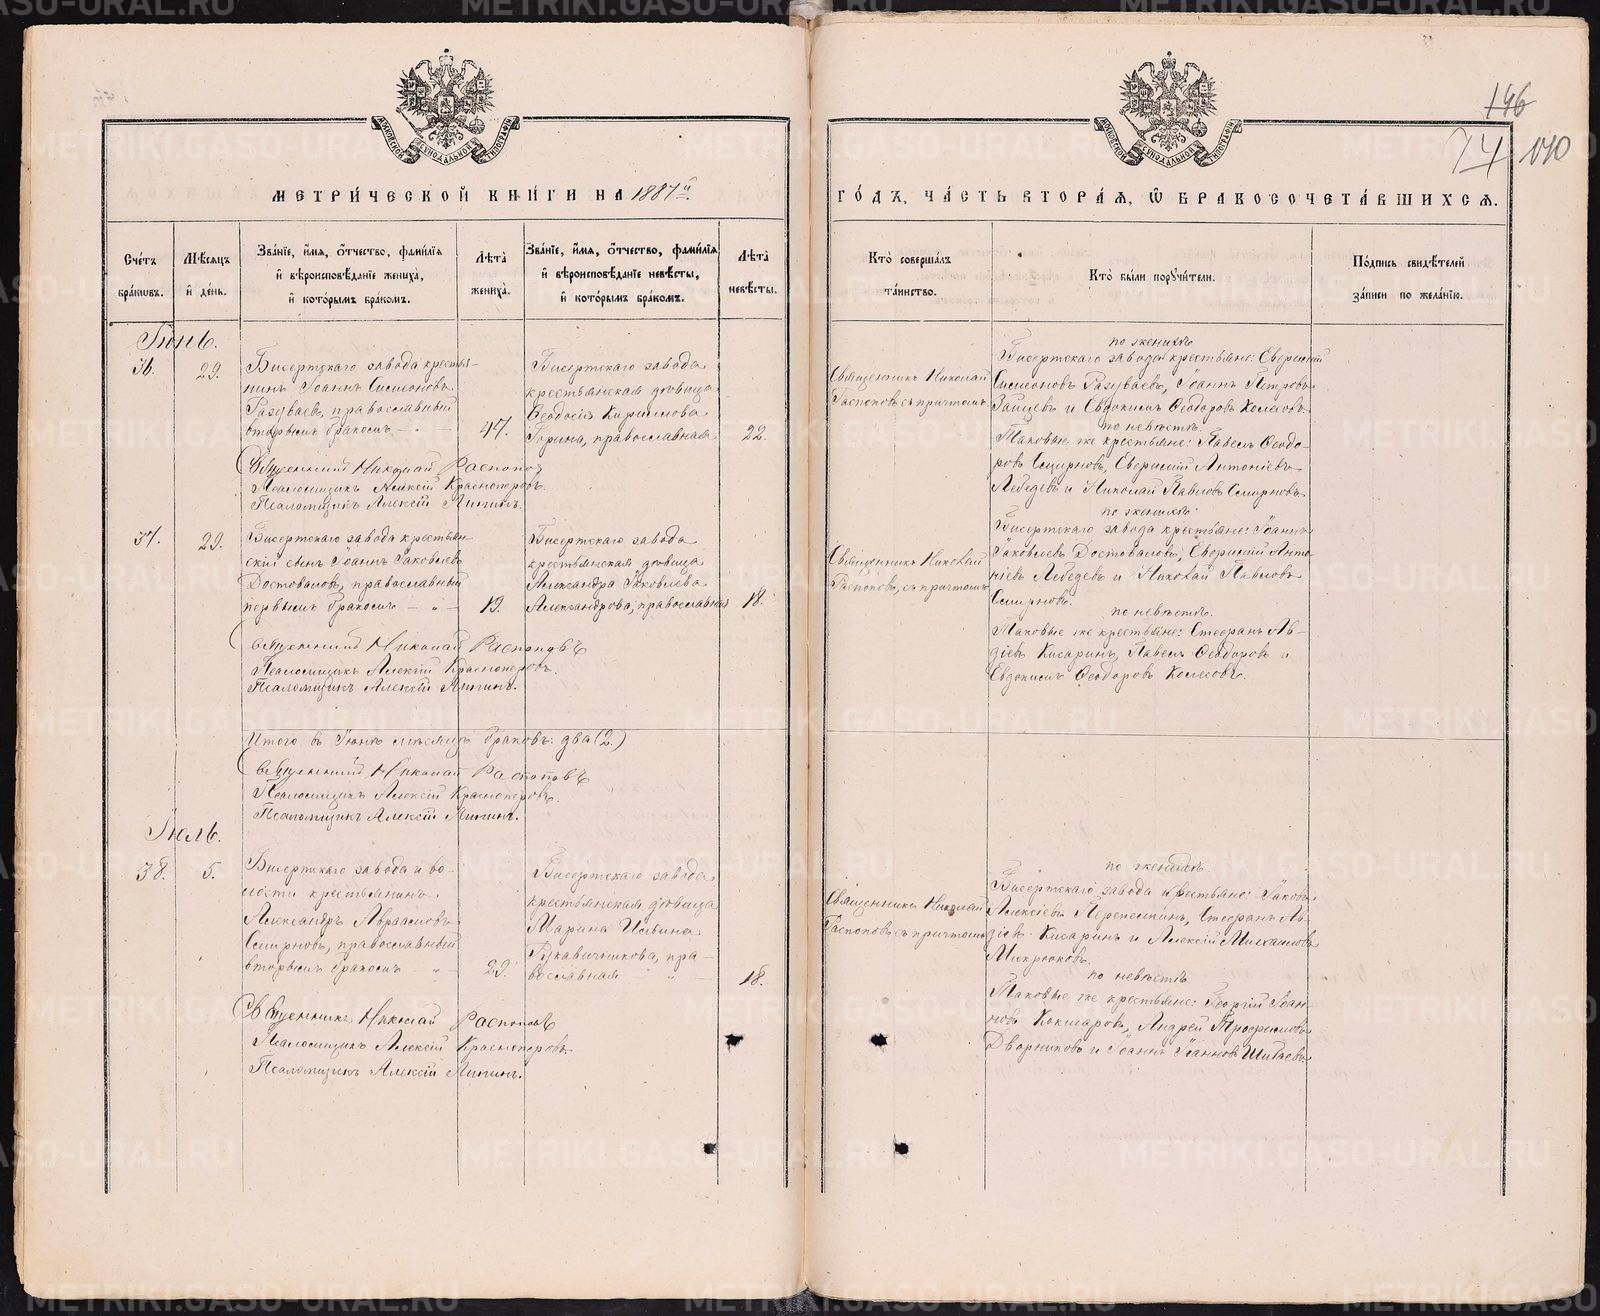 МЕТРИ́ЧЕСКОЙ КНИ́ГИ НА 1887й
Сче́тъ бра́ковъ.
Мѣ́сяцъ и́ день.
Зва́нїе, и́мя, о́тчество, фами́лїя и́ вѣроисповѣ́данїе жениха̀, и́ кото́рымъ бра́комъ.
Лѣ́та жениха̀.
Зва́нїе, и́мя, о́тчество, фами́лїя и́ вѣроисповѣ́данїе невѣ́сты, и́ кото́рымъ бра́комъ.
Лѣ́та невѣ́сты.
Іюнь.
36.
29.
Бисертскаго завода кресть-
нинъ Іоаннъ Симеоновъ
Разуваевъ, православный
вторымъ бракомъ
47.
Бисертскаго завода
крестьянская дѣвица
Ѳеодосія Кириллова
Горина, православная
22.
Священникъ Николай Распоповъ
Псаломщикъ Алексій Красноперовъ.
Псаломщикъ Алексій Липинъ.
37.
29.
Бисертскаго завода крестьян-
скій сынъ Іоаннъ Іаковлевъ
Достоваловъ, православный
первымъ бракомъ
19.
Бисертскаго завода
крестьянская дѣвица
Александра Іаковлева
Александрова, православная
18.
Священникъ Николай Распоповъ
Псаломщикъ Алексій Красноперовъ.
Псаломщикъ Алексій Липинъ.
Итого въ Іюнѣ мѣсяцѣ браковъ: два (2.)
Священникъ Николай Распоповъ
Псаломщикъ Алексій Красноперовъ.
Псаломщикъ Алексій Липинъ.
Іюль.
38.
5.
Бисертскаго завода и во-
лости крестьянинъ
Александръ Авраамовъ
Смирновъ, православный
вторымъ бракомъ
29.
Бисертскаго завода
крестьянская дѣвица
Марина Ильина
Рукавичникова, пра-
вославная
18.
Священникъ Николай Распоповъ
Псаломщикъ Алексій Красноперовъ
Псаломщикъ Алексій Липинъ.
146
74
140
ГО́ДЪ, ЧА́СТЬ ВТОРА́Я, Ѡ БРАКОСОЧЕТА́ВШИХСЯ.
Кто̀ соверша́лъ та́инство.
Кто̀ бы́ли поручи́тели.
По́дпись свидѣ́телей за́писи по жела́нїю.
Священникъ Николай
Распоповъ съ причтомъ
по женихѣ
Бисертскаго завода крестьяне: Евгеній
Симеоновъ Разуваевъ, Іоаннъ Петровъ
Зайцевъ и Евдокимъ Ѳеодоровъ Колесовъ
по невѣстѣ
Таковые же крестьяне: Павелъ Ѳеодо-
ровъ Смирновъ, Евгеній Антоніевъ
Лебедевъ и Николай Павловъ Смирновъ
Священникъ Николай
Распоповъ, съ причтомъ
по женихѣ:
Бисертскаго завода крестьяне: Іоаннъ
Іаковлевъ Достоваловъ, Евгеній Анто-
ніевъ Лебедевъ и Николай Павловъ
Смирновъ.
по невѣстѣ.
Таковые же крестьяне: Стефанъ Ав-
діевъ Кисаринъ, Павелъ Ѳеодоровъ и
Евдокимъ Ѳеодоровъ Колесовъ.
Священникъ Николай
Распоповъ съ причтомъ
по женихѣ.
Бисертскаго завода крестьяне: Іаковъ
Алексіевъ Перепелкинъ, Стефанъ Ав-
діевъ Кисаринъ и Алексій Михаиловъ
Микрюковъ.
по невѣстѣ
Таковые же крестьяне: Георгій Іоан-
новъ Кокшаровъ, Андрей Трофимовъ
Дворниковъ и Іоаннъ Іоанновъ
METRIKI.GASO-URAL.RU